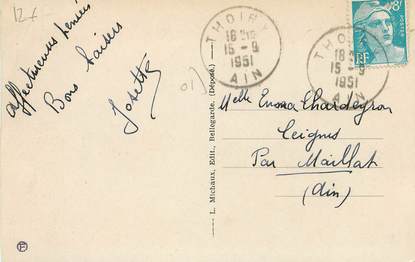 12+
affectueuses pensées
Bons baisers
Josette
THOIRY
18 H
15-9
1951
AIN
THOIRY
18 H
15-9
1951
AIN
8F
RF
L. Michaux, Edit., Bellegarde. (Déposé.)
Melle Emma Chardeyron
Ceignes
Par Maillat
(Ain)